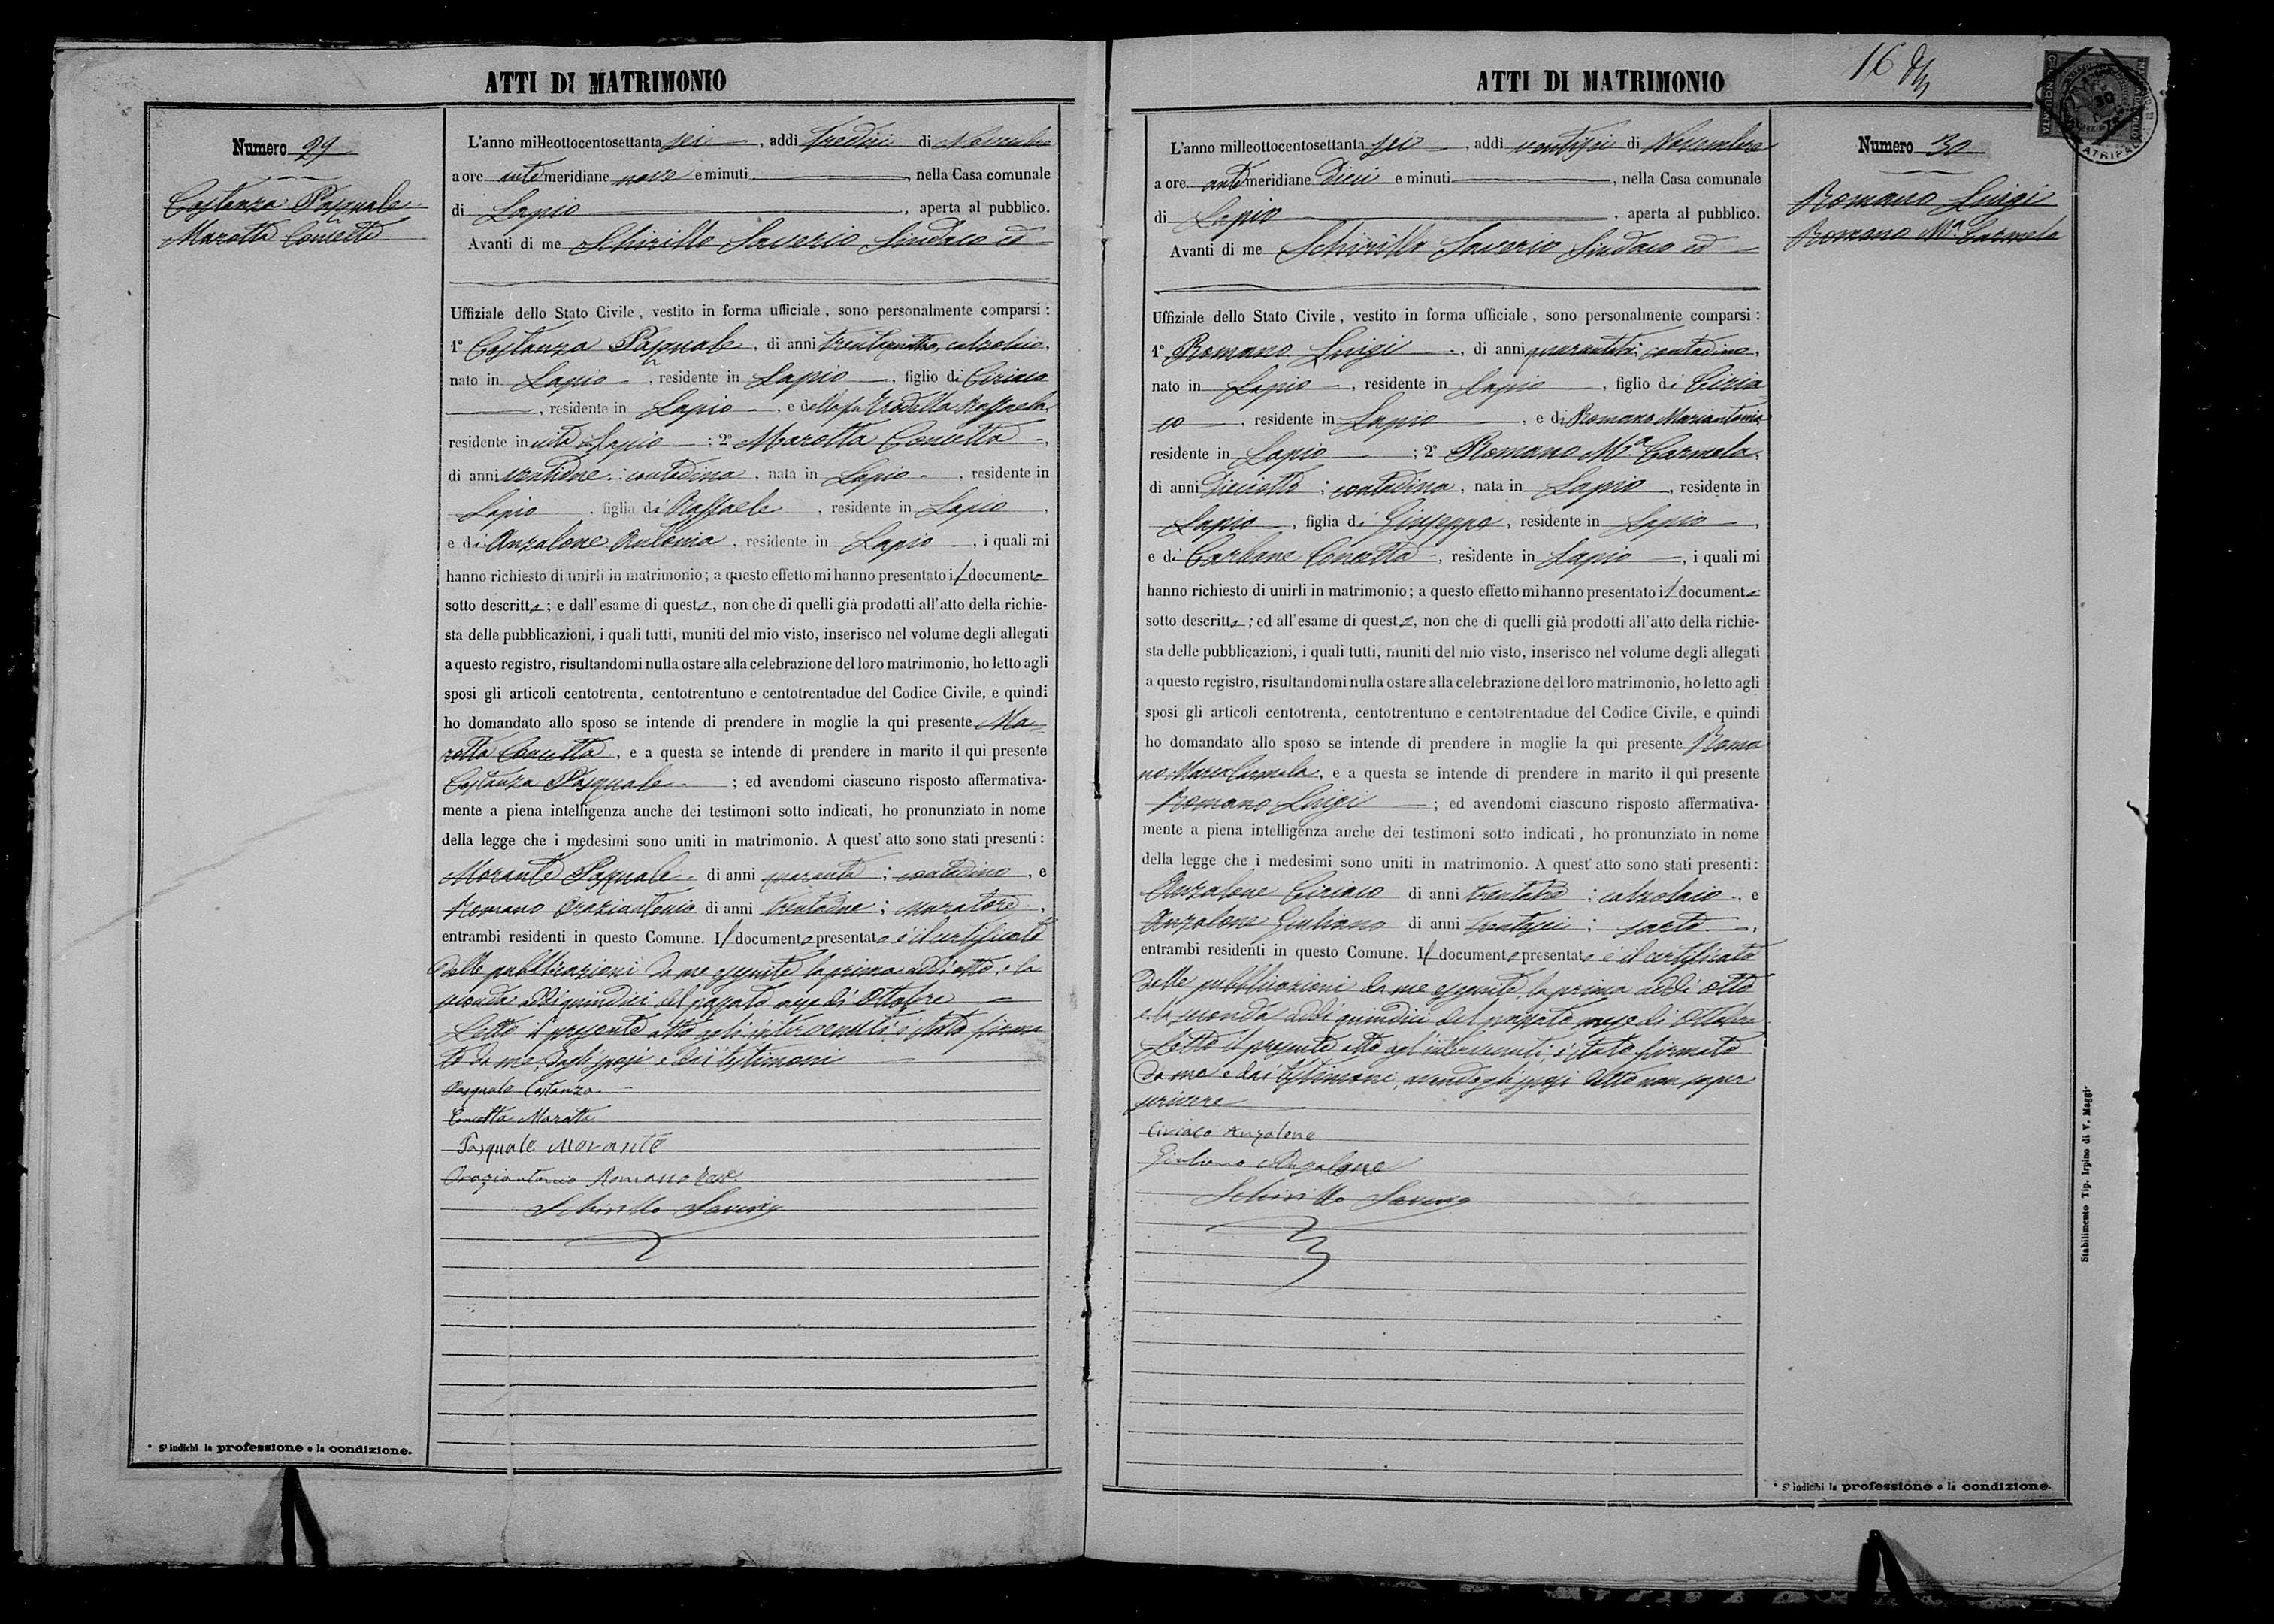 ATTI DI MATRIMONIO
Numero 29
Costanza Pasquale
Marotta Concetta
L'anno milleottocentosettanta sei, addi tredici di Novembre
a ore antemeridiane nove e minuti, nella Casa comunale
di Lapio, aperta al pubblico.
Avanti di me Schirillo Saverio Sindaco ed
Uffiziale dello Stato Civile, vestito in forma ufficiale, sono personalmente comparsi:
1° Costanza Pasquale, di anni trentaquattro, calzolaio,
nato in Lapio, residente in Lapio, figlio di Ciriaco
, residente in Lapio, e della fu Trodella Raffaela,
residente in vita Lapio; 2° Marotta Concetta,
di anni; contadina, nata in Lapio, residente in
Lapio, figlia di Raffaele, residente in Lapio,
e di Anzalone Antonia, residente in Lapio, i quali mi
hanno richiesto di unirli in matrimonio; a questo effetto mi hanno presentato il documento
sotto descritto; e dall'esame di questo, non che di quelli già prodotti all'atto della richie-
sta delle pubblicazioni, i quali tutti, muniti del mio visto, inserisco nel volume degli allegati
a questo registro, risultandomi nulla ostare alla celebrazione del loro matrimonio, ho letto agli
sposi gli articoli centotrenta, centotrentuno e centotrentadue del Codice Civile, e quindi
ho domandato allo sposo se intende di prendere in moglie la qui presente Ma-
rotta Concetta, e a questa se intende di prendere in marito il qui presente
Costanza Pasquale; ed avendomi ciascuno risposto affermativa-
mente a piena intelligenza anche dei testimoni sotto indicati, ho pronunziato in nome
della legge che i medesimi sono uniti in matrimonio. A quest'atto sono stati presenti:
Morante Pasquale di anni quaranta; contadino, e
Romano Oraziantonio di anni trentadue; muratore,
entrambi residenti in questo Comune. Il documento presentato è il certificato
delle pubblicazioni da me eseguite la prima addì otto e la
seconda addì quindici del passato mese di Ottobre
Letto il presente atto agli intervenuti è stato firma
to da me, dagli sposi e dai testimoni
Pasquale Costanza
Concetta Marotta
Pasquale Morante
Oraziantonio Romano
Schirillo Saverio
* Si indichi la professione o la condizione.
ATTI DI MATRIMONIO
16
L'anno milleottocentosettanta sei, addi ventisei di Novembre
a ore antemeridiane dieci e minuti, nella Casa comunale
di Lapio, aperta al pubblico.
Avanti di me Schirillo Saverio Sindaco ed
Uffiziale dello Stato Civile, vestito in forma ufficiale, sono personalmente comparsi:
1° Romano Luigi, di anni quarantatre, contadino,
nato in Lapio, residente in Lapio, figlio di Ciria
co, residente in Lapio, e di Romano Mariantonia
residente in Lapio; 2° Romano Mª Carmela,
di anni dieciotto; contadina, nata in Lapio, residente in
Lapio, figlia di Giuseppe, residente in Lapio,
e di Carbone Concetta, residente in Lapio, i quali mi
hanno richiesto di unirli in matrimonio; a questo effetto mi hanno presentato il documento
sotto descritto; ed all'esame di questo, non che di quelli già prodotti all'atto della richie-
sta delle pubblicazioni, i quali tutti, muniti del mio visto, inserisco nel volume degli allegati
a questo registro, risultandomi nulla ostare alla celebrazione del loro matrimonio, ho letto agli
sposi gli articoli centotrenta, centotrentuno e centotrentadue del Codice Civile, e quindi
ho domandato allo sposo se intende di prendere in moglie la qui presente Roma
no Maria Carmela, e a questa se intende di prendere in marito il qui presente
Romano Luigi; ed avendomi ciascuno risposto affermativa-
mente a piena intelligenza anche dei testimoni sotto indicati, ho pronunziato in nome
della legge che i medesimi sono uniti in matrimonio. A quest'atto sono stati presenti:
Anzalone Ciriaco di anni trentatre; calzolaio, e
Anzalone Giuliano di anni trentasei; sarto,
entrambi residenti in questo Comune. Il documento presentato è il certificato
delle pubblicazioni da me eseguite, la prima addì otto
e la seconda addì quindici del passato mese di Ottobre
Letto il presente atto agl'intervenuti, è stato firmato
da me e dai testimoni, avendo gli sposi detto non saper
scrivere
Ciriaco Anzalone
Giuliano Anzalone
Schirillo Saverio
Numero 30
Romano Luigi
Romano Mª Carmela
Stabilimento Tip. Irpino di V. Maggi
* Si indichi la professione o la condizione.